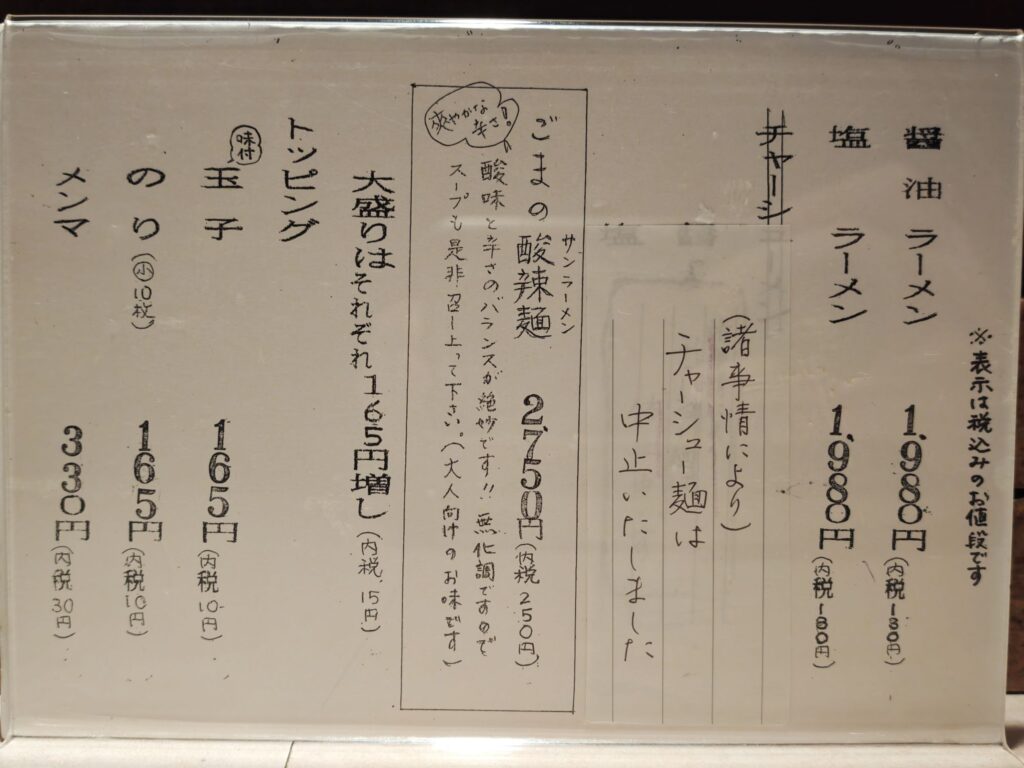 ※表示は税込みのお値段です
醤油ラーメン 1,980円(内税180円)
塩ラーメン 1,980円(内税180円)
チャーシ
(諸事情により)
チャーシュー麺は
中止いたしました
サンラーメン
ごまの酸辣麺 2,750円(内税250円)
爽やかな辛さ!!
酸味と辛さのバランスが絶妙です!!無化調ですので
スープも是非召し上って下さい。(大人向けのお味です)
大盛りはそれぞれ165円増し(内税15円)
トッピング
味付
玉子 165円(内税10円)
のり(小10枚) 165円(内税10円)
メンマ 330円(内税30円)